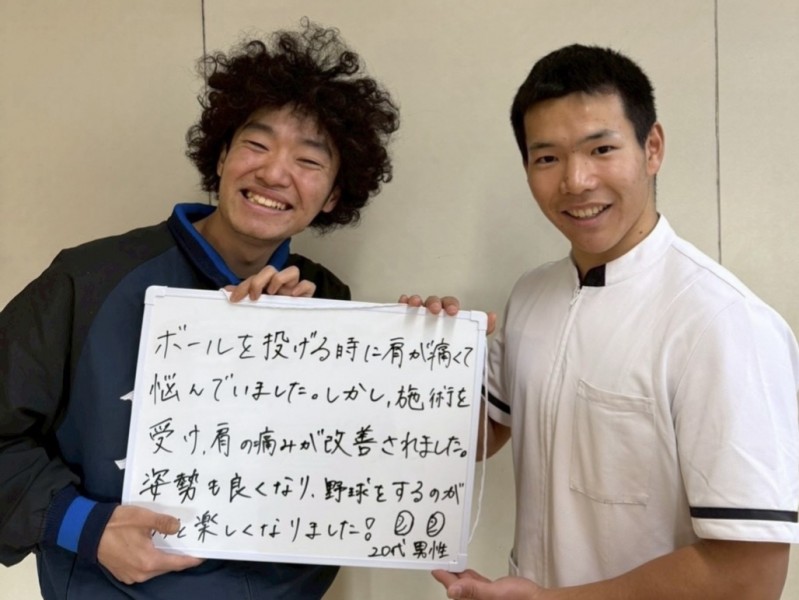 ボールを投げる時に肩が痛くて
悩んでいました。しかし、施術を
受け、肩の痛みが改善されました。
姿勢も良くなり、野球をするのが
と楽しくなりました!
20代 男性